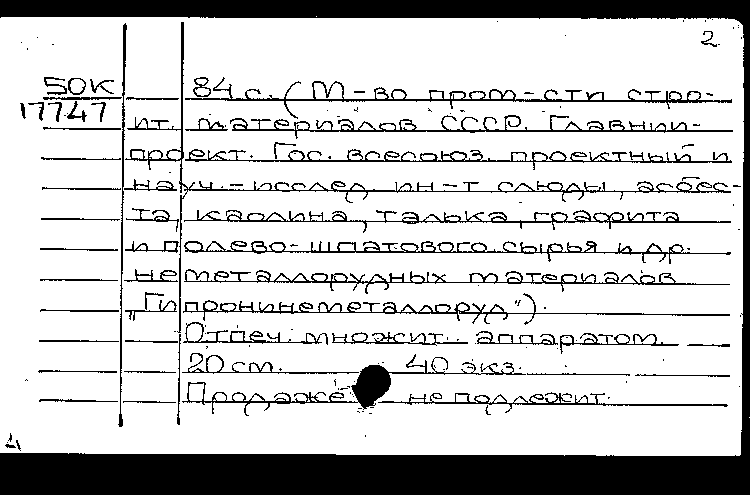 2
50К 84 с. (М-во пром-сти стро-
17747
ит. материалов СССР. Главнии-
проект. Гос. всесоюз. проектный и
науч.-исслед. ин-т слюды, асбес-
та, каолина, талька, графита
и полево-шпатового сырья и др.
неметаллорудных материалов
„Гипронинеметаллоруд").
Отпеч. множит. аппаратом.
20 см. 40 экз.
Продаже не подлежит.
4